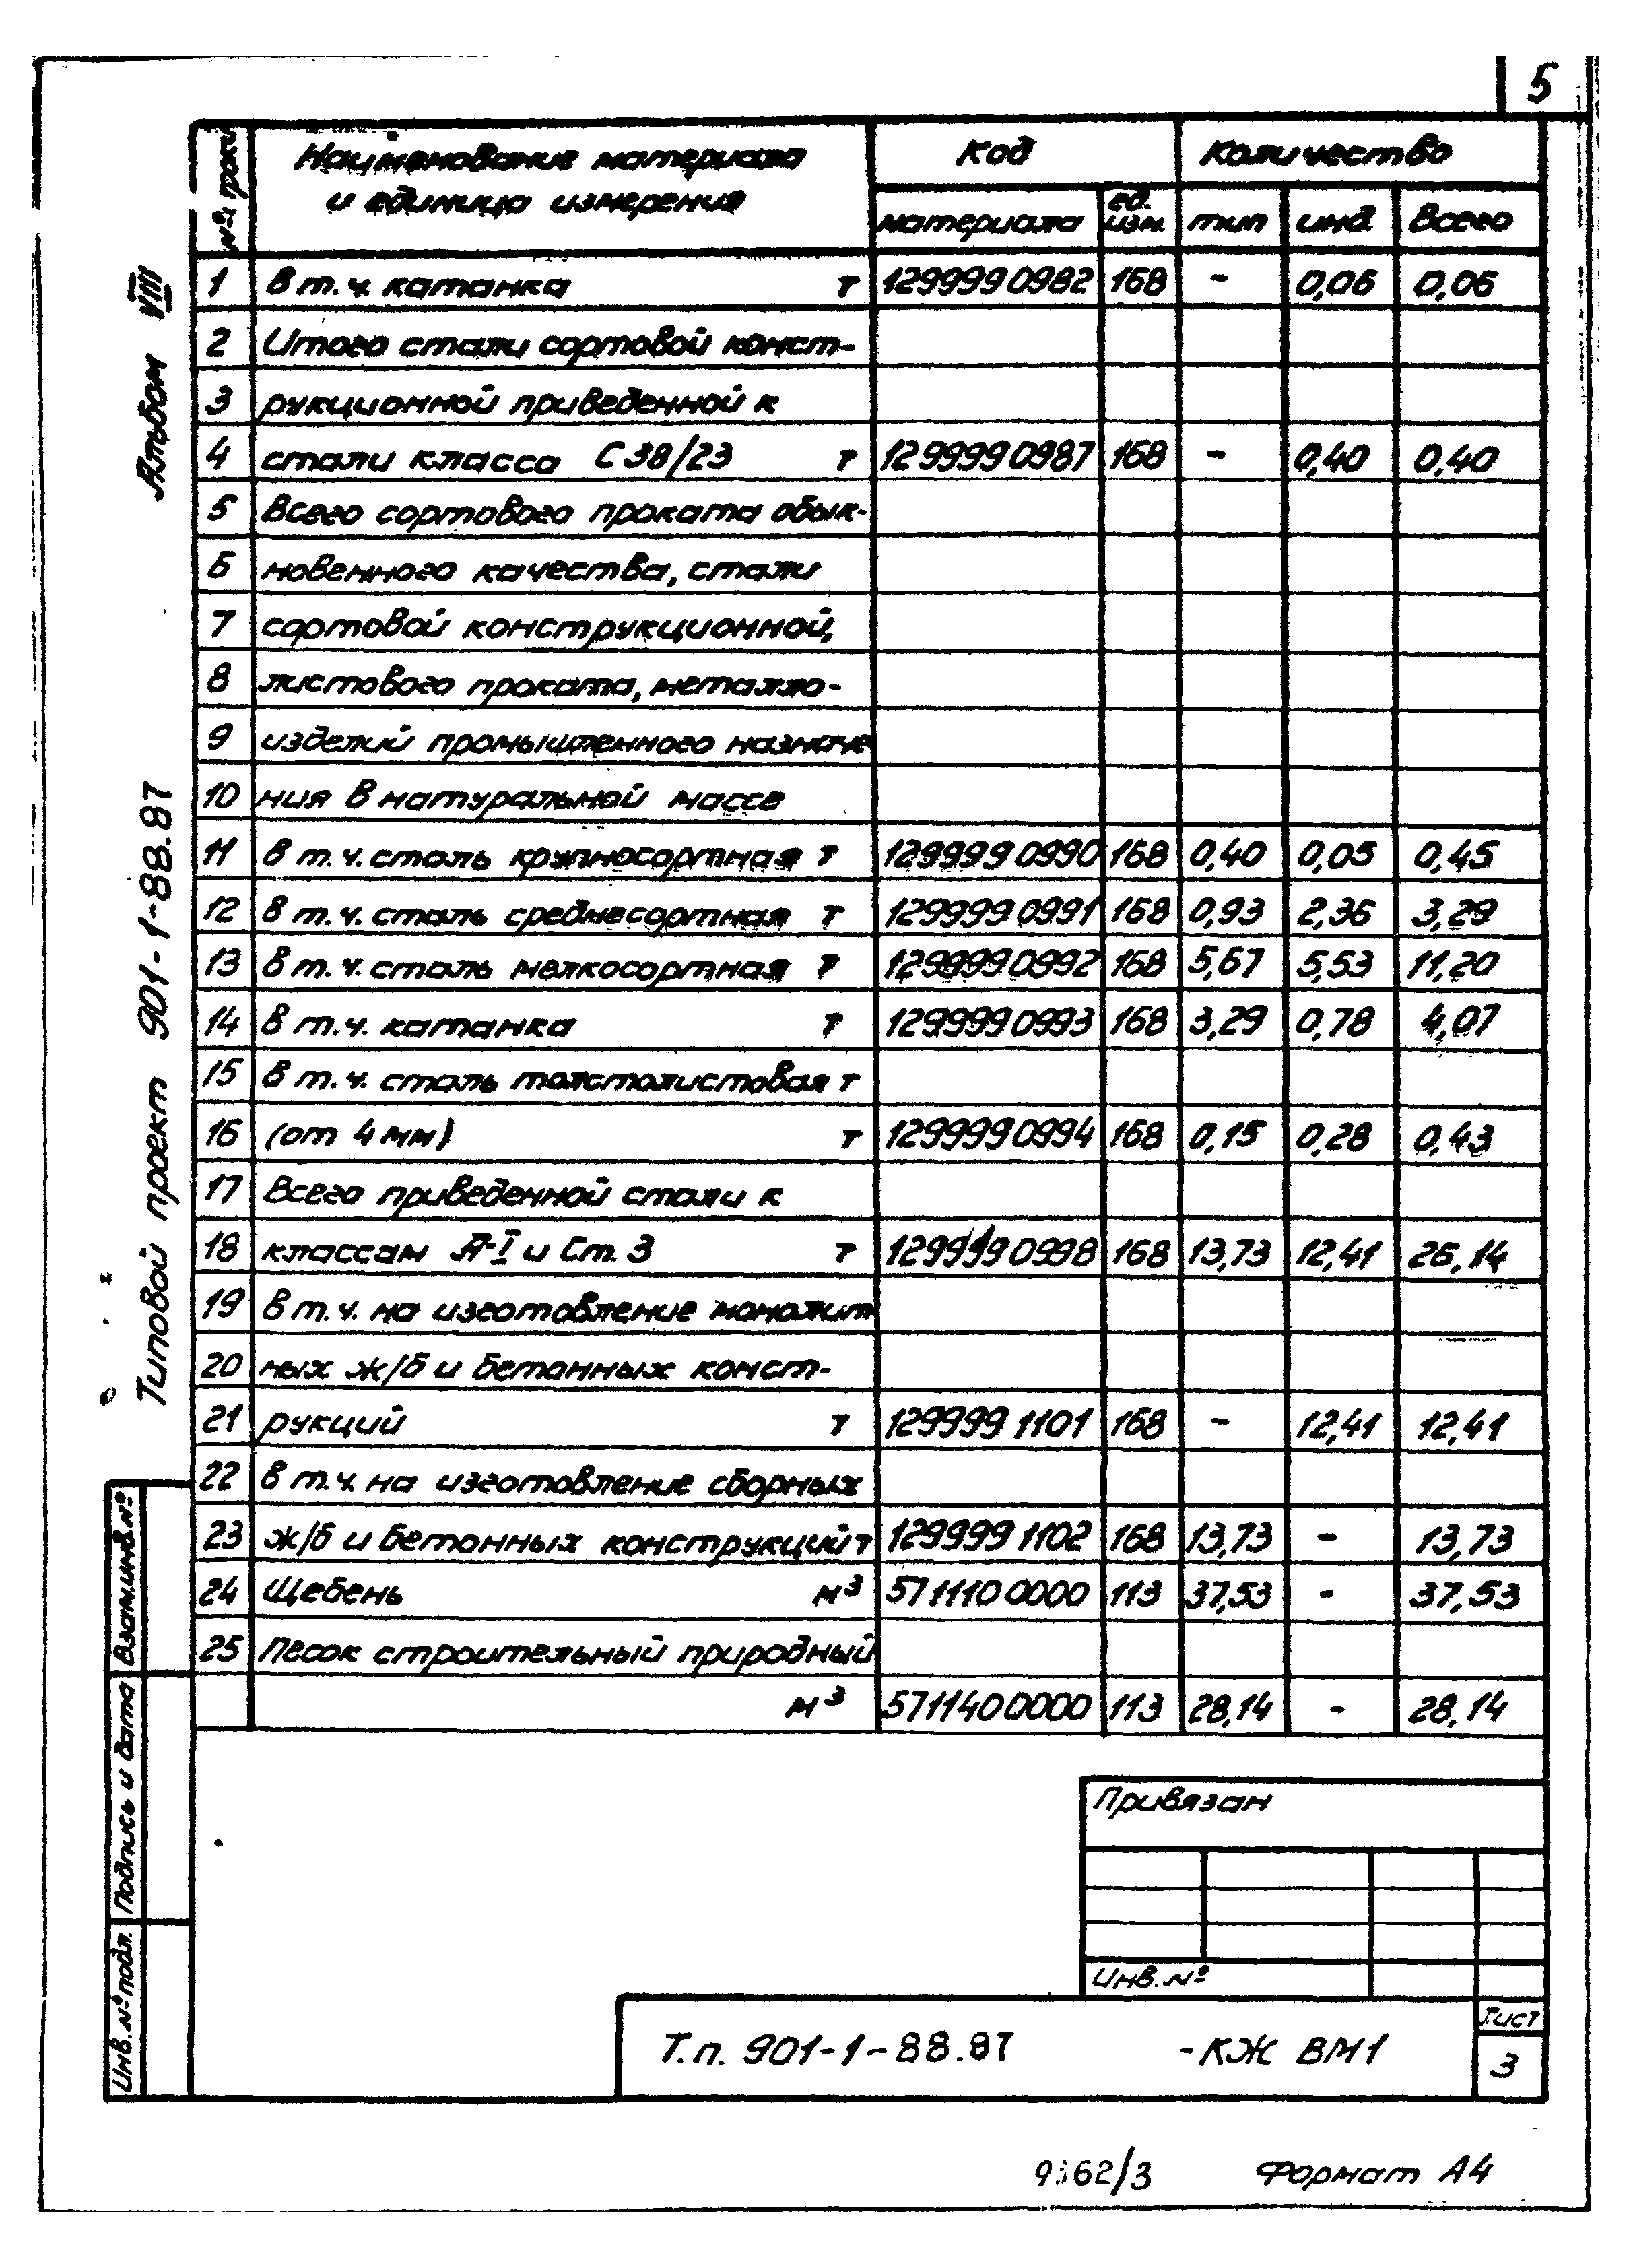 5
№№ строки
Наименование материала и единица измерения
Код
Количество
материала
ед. изм.
тип
инд
Всего
1 В т.ч. катанка т 1299990982 168 - 0,06 0,06
2 Итого стали сортовой конст-
3 рукционной приведенной к
4 стали класса С 38/23 т 1299990987 168 - 0,40 0,40
5 Всего сортового проката обык-
6 новенного качества, стали
7 сортовой конструкционной,
8 листового проката, металло-
9 изделий промышленного назначе
10 ния в натуральной массе
11 в т.ч. сталь крупносортная т 1299990990 168 0,40 0,05 0,45
12 в т.ч. сталь среднесортная т 1299990991 168 0,93 2,36 3,29
13 в т.ч. сталь мелкосортная т 1299990992 168 5,67 5,53 11,20
14 в т.ч. катанка т 1299990993 168 3,29 0,78 4,07
15 в т.ч. сталь толстолистовая т
16 (от 4 мм) т 1299990994 168 0,15 0,28 0,43
17 Всего приведенной стали к
18 классам А-I и Ст. 3 т 1299990998 168 13,73 12,41 26,14
19 в т.ч. на изготовление монолит
20 ных ж/б и бетонных конст-
21 рукций т 1299991101 168 - 12,41 12,41
22 в т.ч. на изготовление сборных
23 ж/б и бетонных конструкций т 1299991102 168 13,73 - 13,73
24 Щебень м³ 5711100000 113 37,53 - 37,53
25 Песок строительный природный
м³ 5711400000 113 28,14 - 28,14
Альбом VIII
Типовой проект 901-1-88.87
Взам.инв.№
Подпись и дата
Инв.№подл.
Привязан
Инв.№
Т.п. 901-1-88.87 -КЖ ВМ1
Лист
3
Формат А4